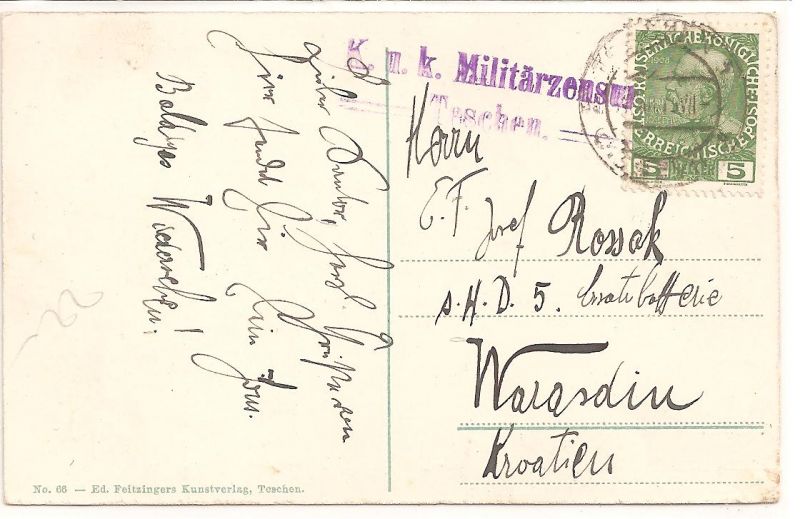 K. u. k. Militärzensur
Teschen.
KAISERLICHE KÖNIGLICHE POST
ÖSTERREICHISCHE
1908
5 5
Herrn
E. F. Josef Rossak
s. H. D. 5. Ersatzbatterie
Warasdin
Kroatien
herzl. Grüße von
hier sendet Dir Dein
Baldiges Wiedersehen!
No. 66 — Ed. Feitzingers Kunstverlag, Teschen.